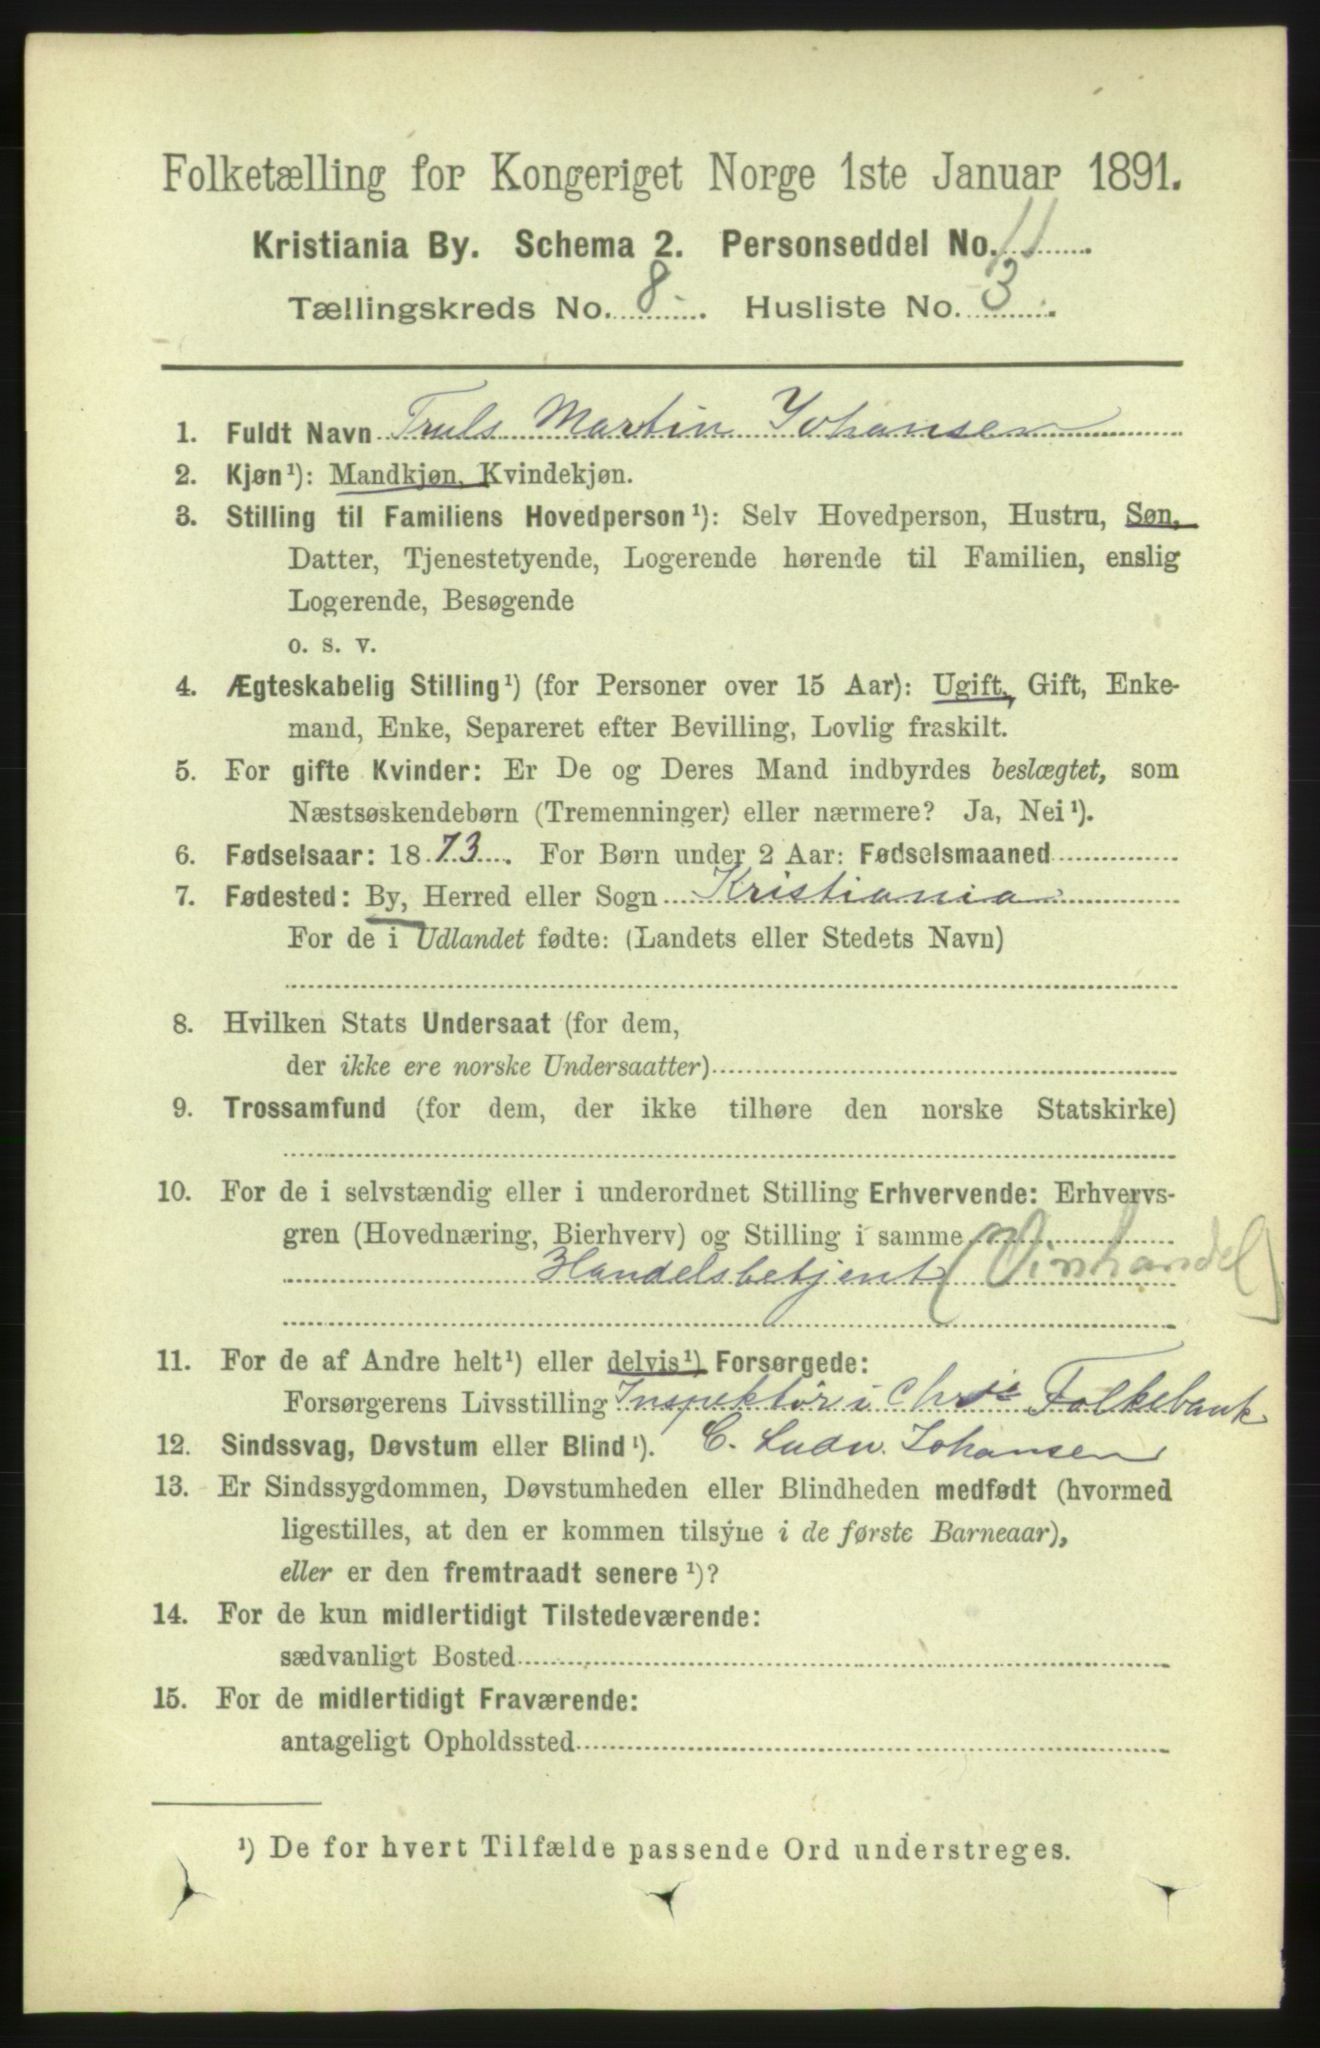 Folketælling for Kongeriget Norge 1ste Januar 1891.
Kristiania By. Schema 2. Personseddel No. 11
Tællingskreds No. 8. Husliste No. 3.
1. Fuldt Navn Truls Martin Johansen
2. Kjøn¹): Mandkjøn, Kvindekjøn.
3. Stilling til Familiens Hovedperson¹): Selv Hovedperson, Hustru, Søn,
Datter, Tjenestetyende, Logerende hørende til Familien, enslig
Logerende, Besøgende
o. s. v.
4. Ægteskabelig Stilling¹) (for Personer over 15 Aar): Ugift, Gift, Enke-
mand, Enke, Separeret efter Bevilling, Lovlig fraskilt.
5. For gifte Kvinder: Er De og Deres Mand indbyrdes beslægtet, som
Næstsøskendebørn (Tremenninger) eller nærmere? Ja, Nei¹).
6. Fødselsaar: 1873. For Børn under 2 Aar: Fødselsmaaned
7. Fødested: By, Herred eller Sogn Kristiania
For de i Udlandet fødte: (Landets eller Stedets Navn)
8. Hvilken Stats Undersaat (for dem,
der ikke ere norske Undersaatter)
9. Trossamfund (for dem, der ikke tilhøre den norske Statskirke)
10. For de i selvstændig eller i underordnet Stilling Erhvervende: Erhvervs-
gren (Hovednæring, Bierhverv) og Stilling i samme
Handelsbetjent (Vinhandel)
11. For de af Andre helt¹) eller delvis¹) Forsørgede:
Forsørgerens Livsstilling Inspektör i Chr.ia Folkebank
12. Sindssvag, Døvstum eller Blind¹). C. Ludv. Johansen
13. Er Sindssygdommen, Døvstumheden eller Blindheden medfødt (hvormed
ligestilles, at den er kommen tilsyne i de første Barneaar),
eller er den fremtraadt senere¹)?
14. For de kun midlertidigt Tilstedeværende:
sædvanligt Bosted
15. For de midlertidigt Fraværende:
antageligt Opholdssted
¹) De for hvert Tilfælde passende Ord understreges.